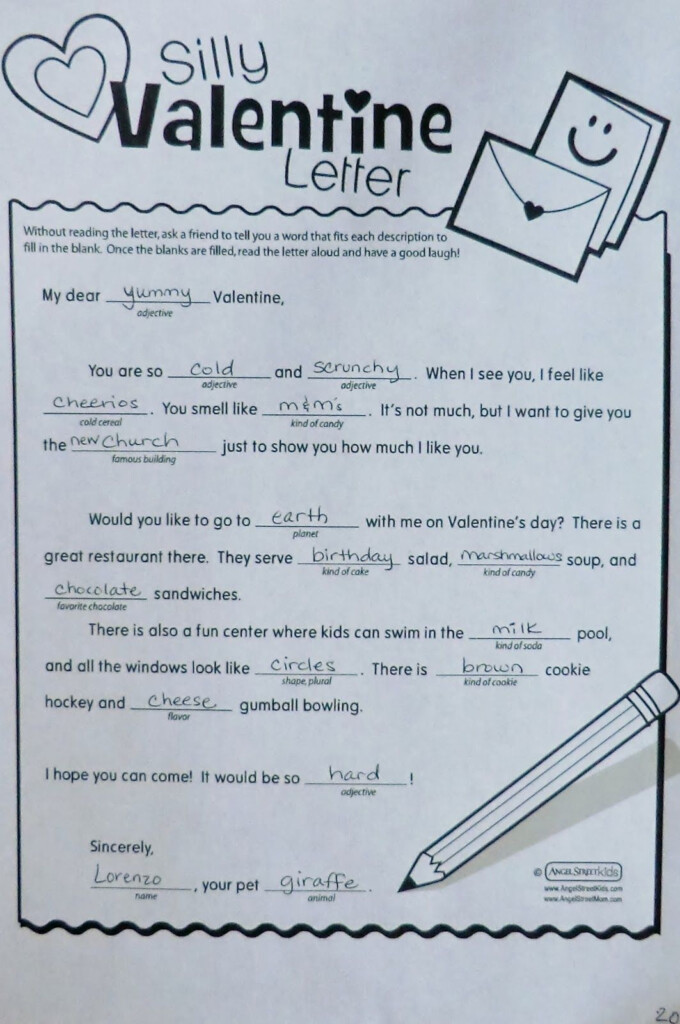 Silly
Valentine
Letter
Without reading the letter, ask a friend to tell you a word that fits each description to
fill in the blank. Once the blanks are filled, read the letter aloud and have a good laugh!
My dear yummy Valentine,
adjective
You are so cold and scrunchy. When I see you, I feel like
adjective adjective
cheerios. You smell like m&m's. It's not much, but I want to give you
cold cereal kind of candy
the new church just to show you how much I like you.
famous building
Would you like to go to earth with me on Valentine's day? There is a
planet
great restaurant there. They serve birthday salad, marshmallows soup, and
kind of cake kind of candy
chocolate sandwiches.
favorite chocolate
There is also a fun center where kids can swim in the milk pool,
kind of soda
and all the windows look like circles. There is brown cookie
shape, plural kind of cookie
hockey and cheese gumball bowling.
flavor
I hope you can come! It would be so hard!
adjective
Sincerely,
Lorenzo, your pet giraffe.
name animal
© ANGEL STREET kids
www.AngelStreetKids.com
www.AngelStreetMom.com
20